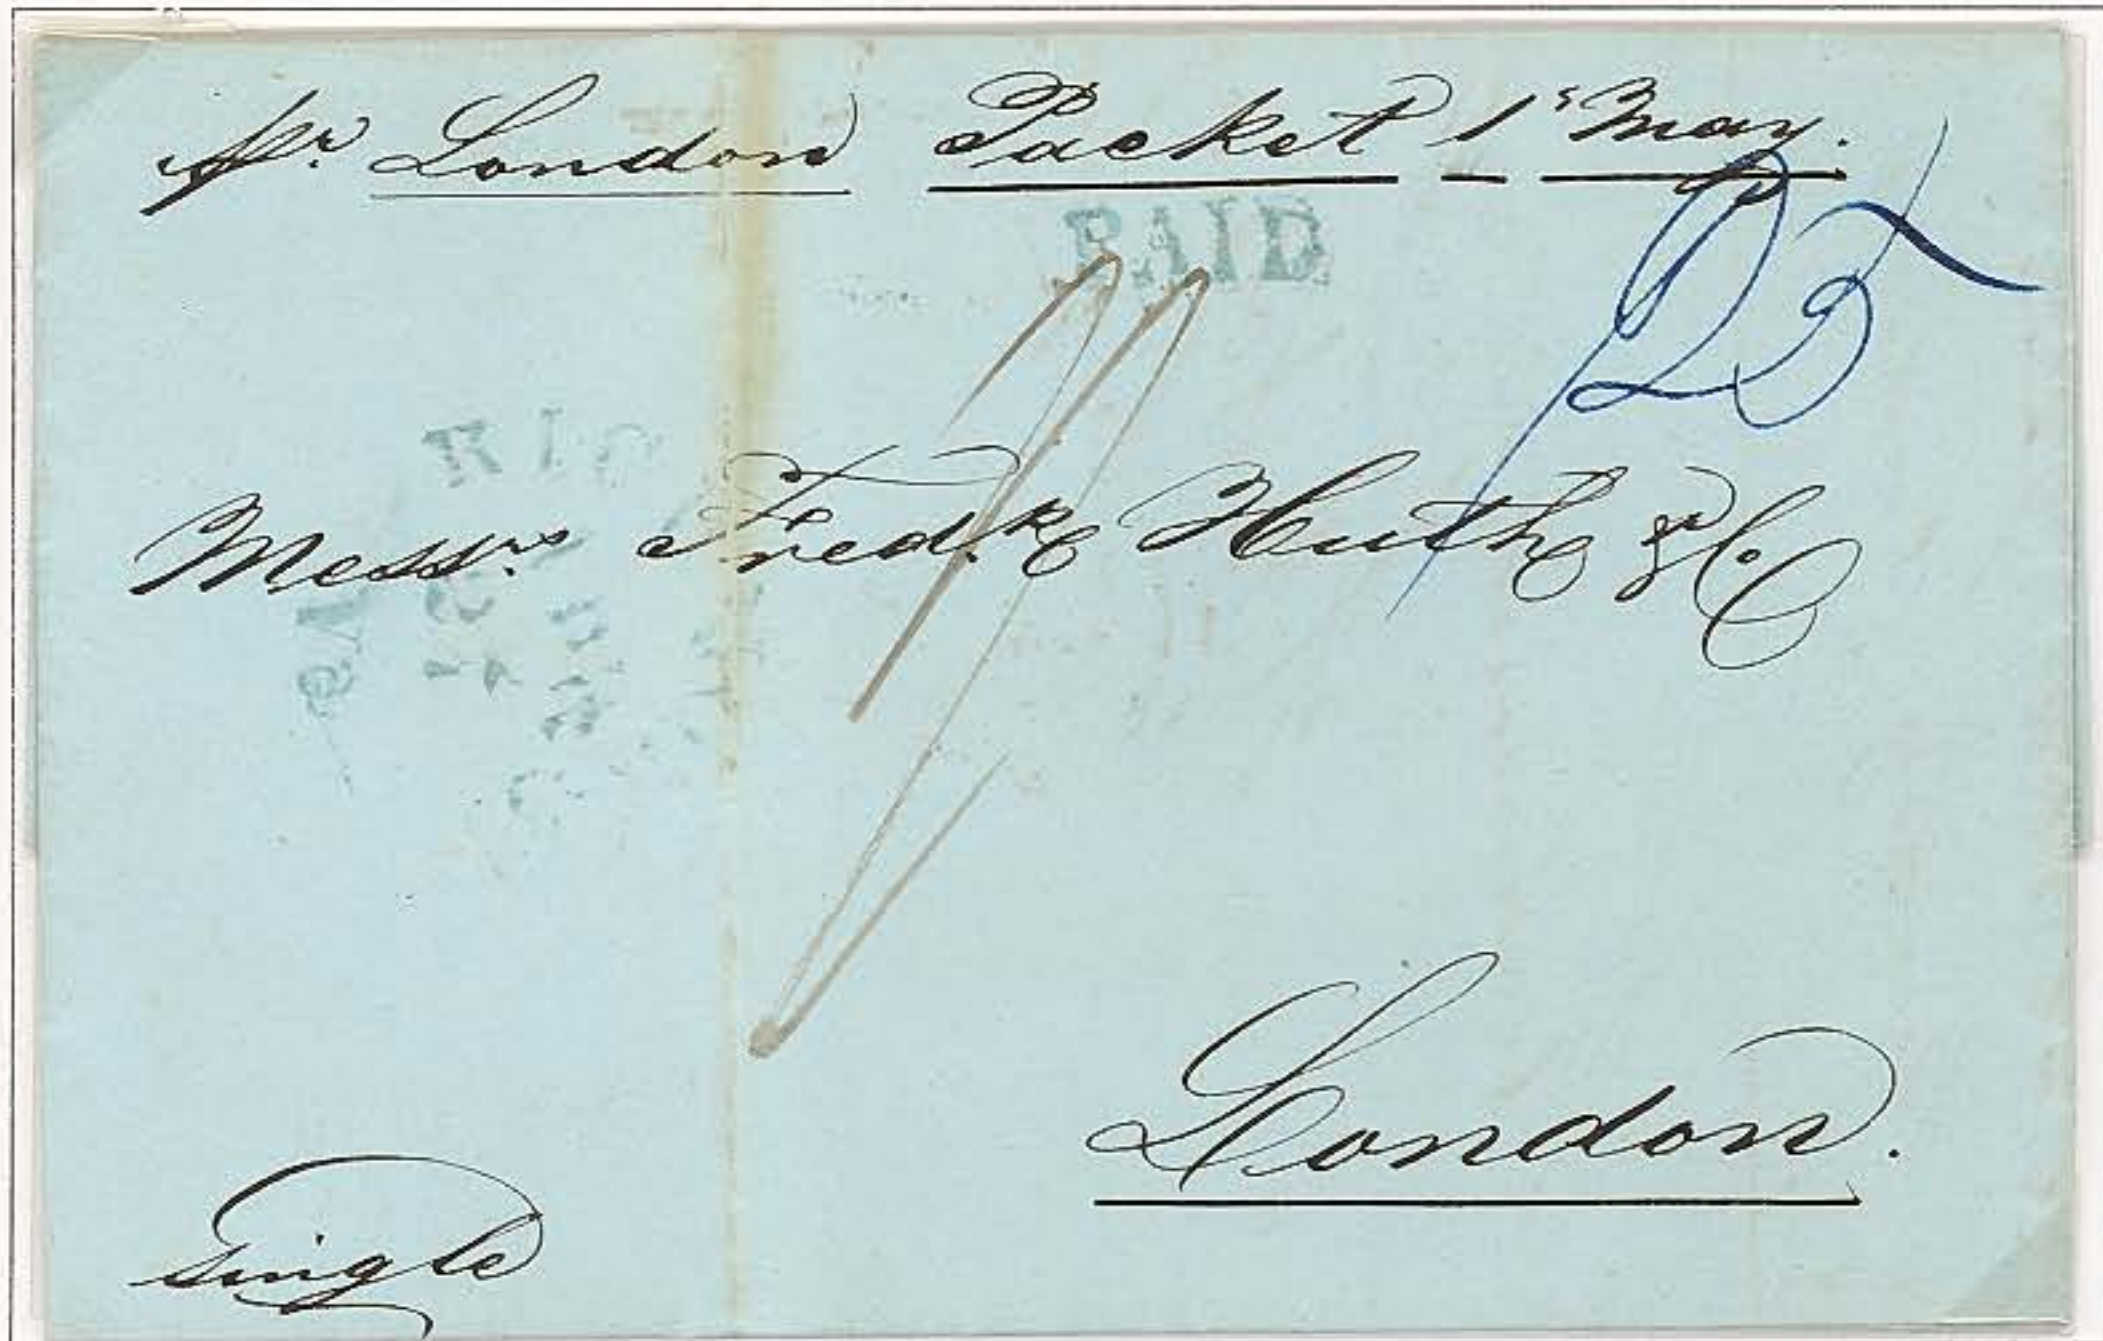 pr London Packet 1s May.
PAID
25
Messrs Fredk Huth & Co
London.
single